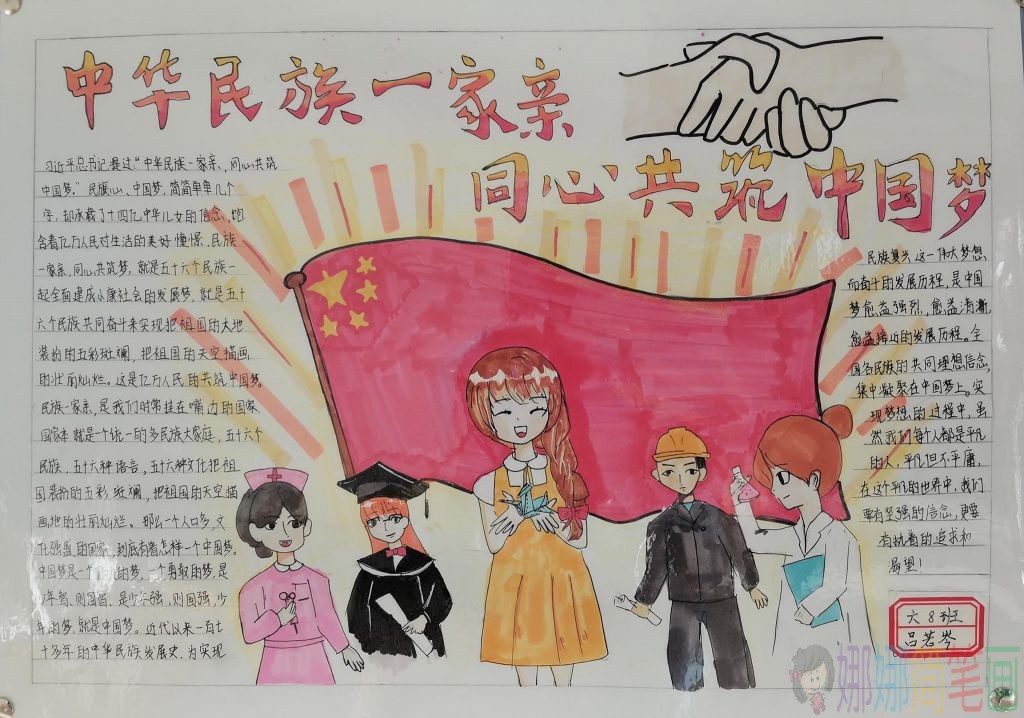 中华民族一家亲
同心共筑中国梦
习近平总书记提过:“中华民族一家亲,同心共筑
中国梦。”民族心、中国梦,简简单单几个
字,却承载了十四亿中华儿女的信念,饱
含着亿万人民对生活的美好憧憬,民族
一家亲,同心共筑梦,就是五十六个民族一
起全面建成小康社会的发展梦,就是五十
六个民族共同奋斗来实现把祖国的大地
装扮的五彩斑斓,把祖国的天空描画
的壮丽灿烂。这是亿万人民的共筑中国梦。
民族一家亲,是我们时常挂在嘴边的国家,
国家本就是一个统一的多民族大家庭,五十六个
民族,五十六种语言,五十六种文化把祖
国装扮的五彩斑斓,把祖国的天空描
画地的壮丽灿烂。那么一个人口多,文
化强盛的国家,到底有着怎样一个中国梦。
中国梦是一个的梦,一个勇敢的梦,是
少年智、则国智、是少年强、则国强,少
年的梦,就是中国梦。近代以来一百七
十多年的中华民族发展史,为实现
民族复兴这一伟大梦想
而奋斗的发展历程,是中国
梦愈益强烈,愈益清晰,
愈益接近的发展历程。全
国各民族的共同理想信念,
集中凝聚在中国梦上。实
现梦想的过程中,虽
然我们每个人都是平凡
的人,平凡但不平庸,
在这个平凡的世界中,我们
要有坚强的信念,更要
有执着的追求和
渴望!
六8班
吕若岑
娜娜简笔画